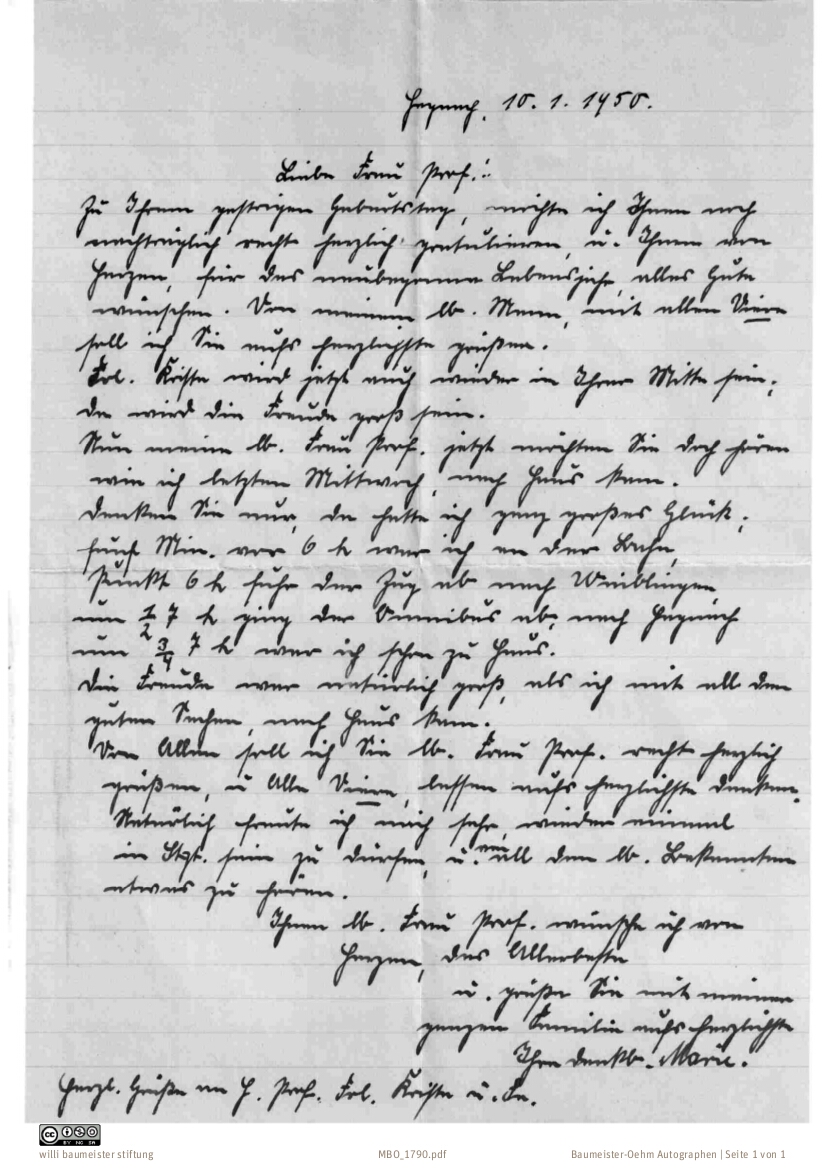 Hegnach, 10. 1. 1950.
Liebe Frau Prof.!
Zu Ihrem gestrigen Geburtstag, möchte ich Ihnen noch
nachträglich recht herzlich gratulieren, u. Ihnen von
Herzen, für das neubegonnene Lebensjahr, alles Gute
wünschen. Von meinem lb. Mann, mit allen Viere
soll ich Sie aufs herzlichste grüßen.
Frl. Krista wird jetzt auch wieder in Ihrer Mitte sein,
da wird die Freude groß sein.
Nun meine lb. Frau Prof. jetzt möchten Sie doch hören
wie ich letzten Mittwoch, nach Haus kam.
Denken Sie nur, da hatte ich ganz großes Glück,
fünf Min. vor 6 h war ich an der Bahn,
Punkt 6 h fuhr der Zug ab nach Waiblingen
um 1/2 7 h ging der Omnibus ab, nach Hegnach
um 3/4 7 h war ich schon zu Haus.
Die Freude war natürlich groß, als ich mit all den
guten Sachen, nach Haus kam.
Von Allen soll ich Sie lb. Frau Prof. recht herzlich
grüßen, u Alle Viere, lassen aufs herzlichste danken.
Natürlich freute ich mich sehr, wieder einmal
in Stgt. sein zu dürfen, u. von all den lb. Bekannten
etwas zu hören.
Ihnen lb. Frau Prof. wünsche ich von
Herzen, das Allerbeste
u. grüße Sie mit meiner
ganzen Familie aufs herzlichste
Ihre dankb. Marie.
Herzl. Grüße an H. Prof. Frl. Krista u. Fe.
CC BY NC SA
willi baumeister stiftung
MBO_1790.pdf
Baumeister-Oehm Autographen | Seite 1 von 1